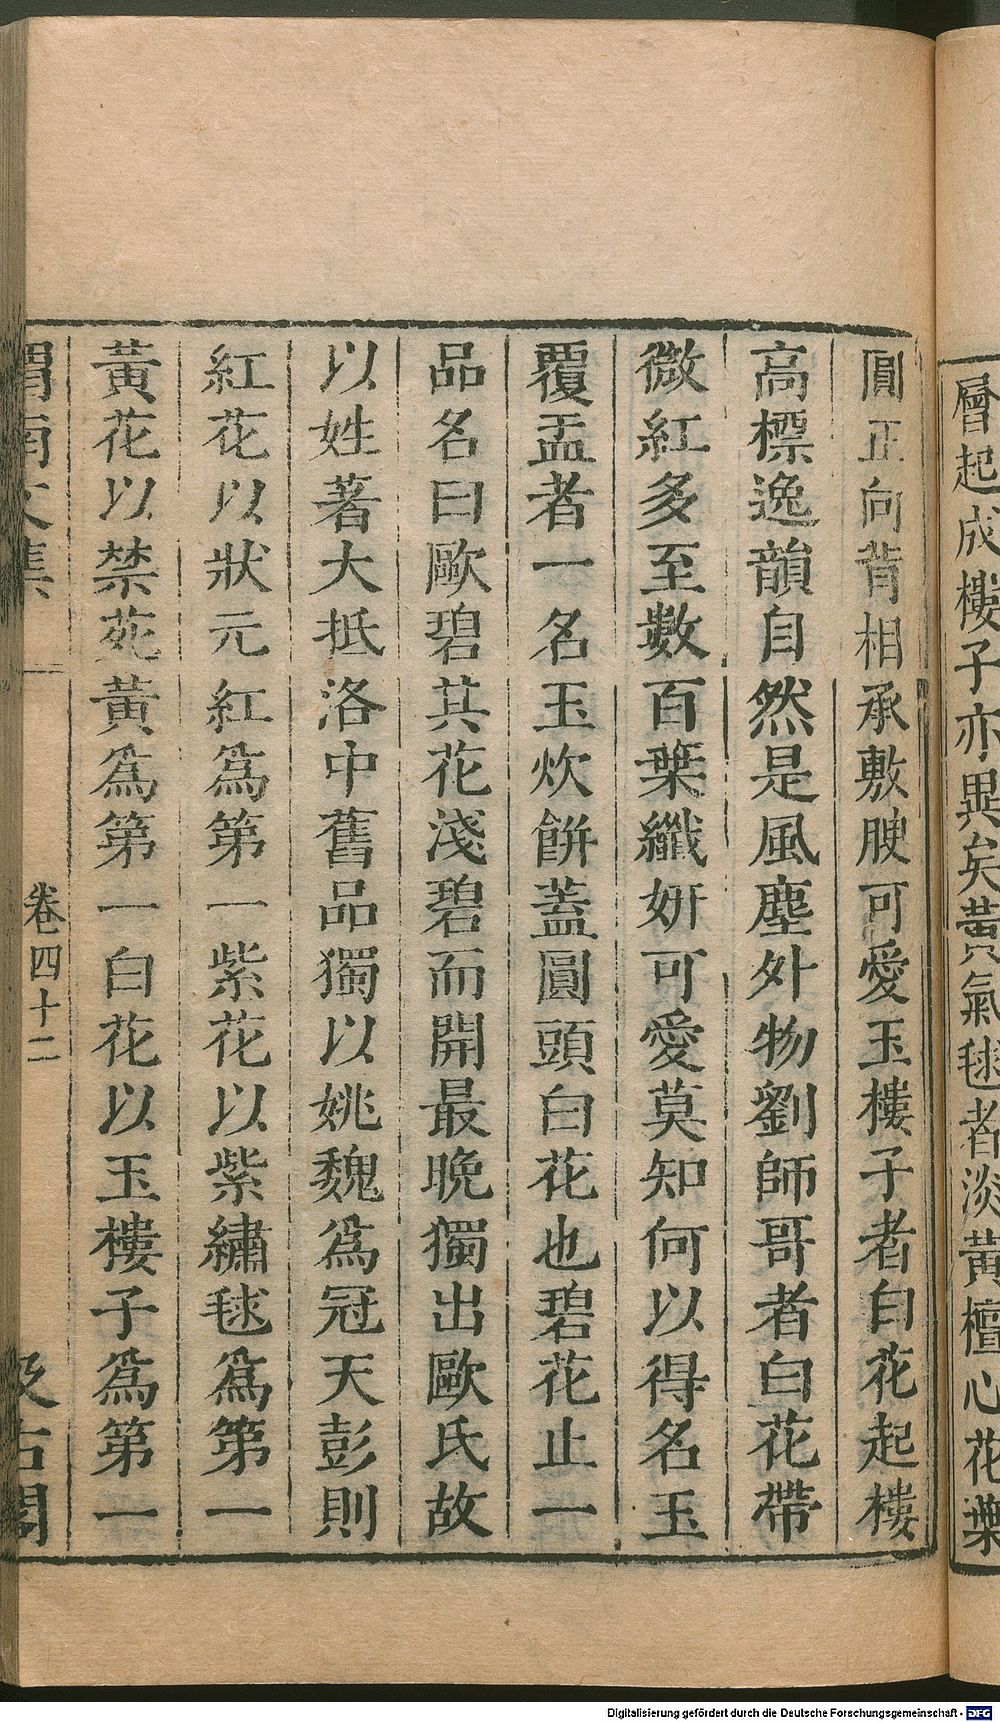 層起成樓子亦異矣黃氣毬者淡黃檀心花葉
圓正向背相承敷腴可愛玉樓子者白花起樓
高標逸韻自然是風塵外物劉師哥者白花帶
微紅多至數百葉纖姸可愛莫知何以得名玉
覆盂者一名玉炊餠蓋圓頭白花也碧花止一
品名曰歐碧其花淺碧而開最晚獨出歐氏故
以姓著大抵洛中舊品獨以姚魏爲冠天彭則
紅花以狀元紅爲第一紫花以紫繡毬爲第一
黃花以禁苑黃爲第一白花以玉樓子爲第一
渭南文集 卷四十二 汲古閣
Digitalisierung gefördert durch die Deutsche Forschungsgemeinschaft - DFG